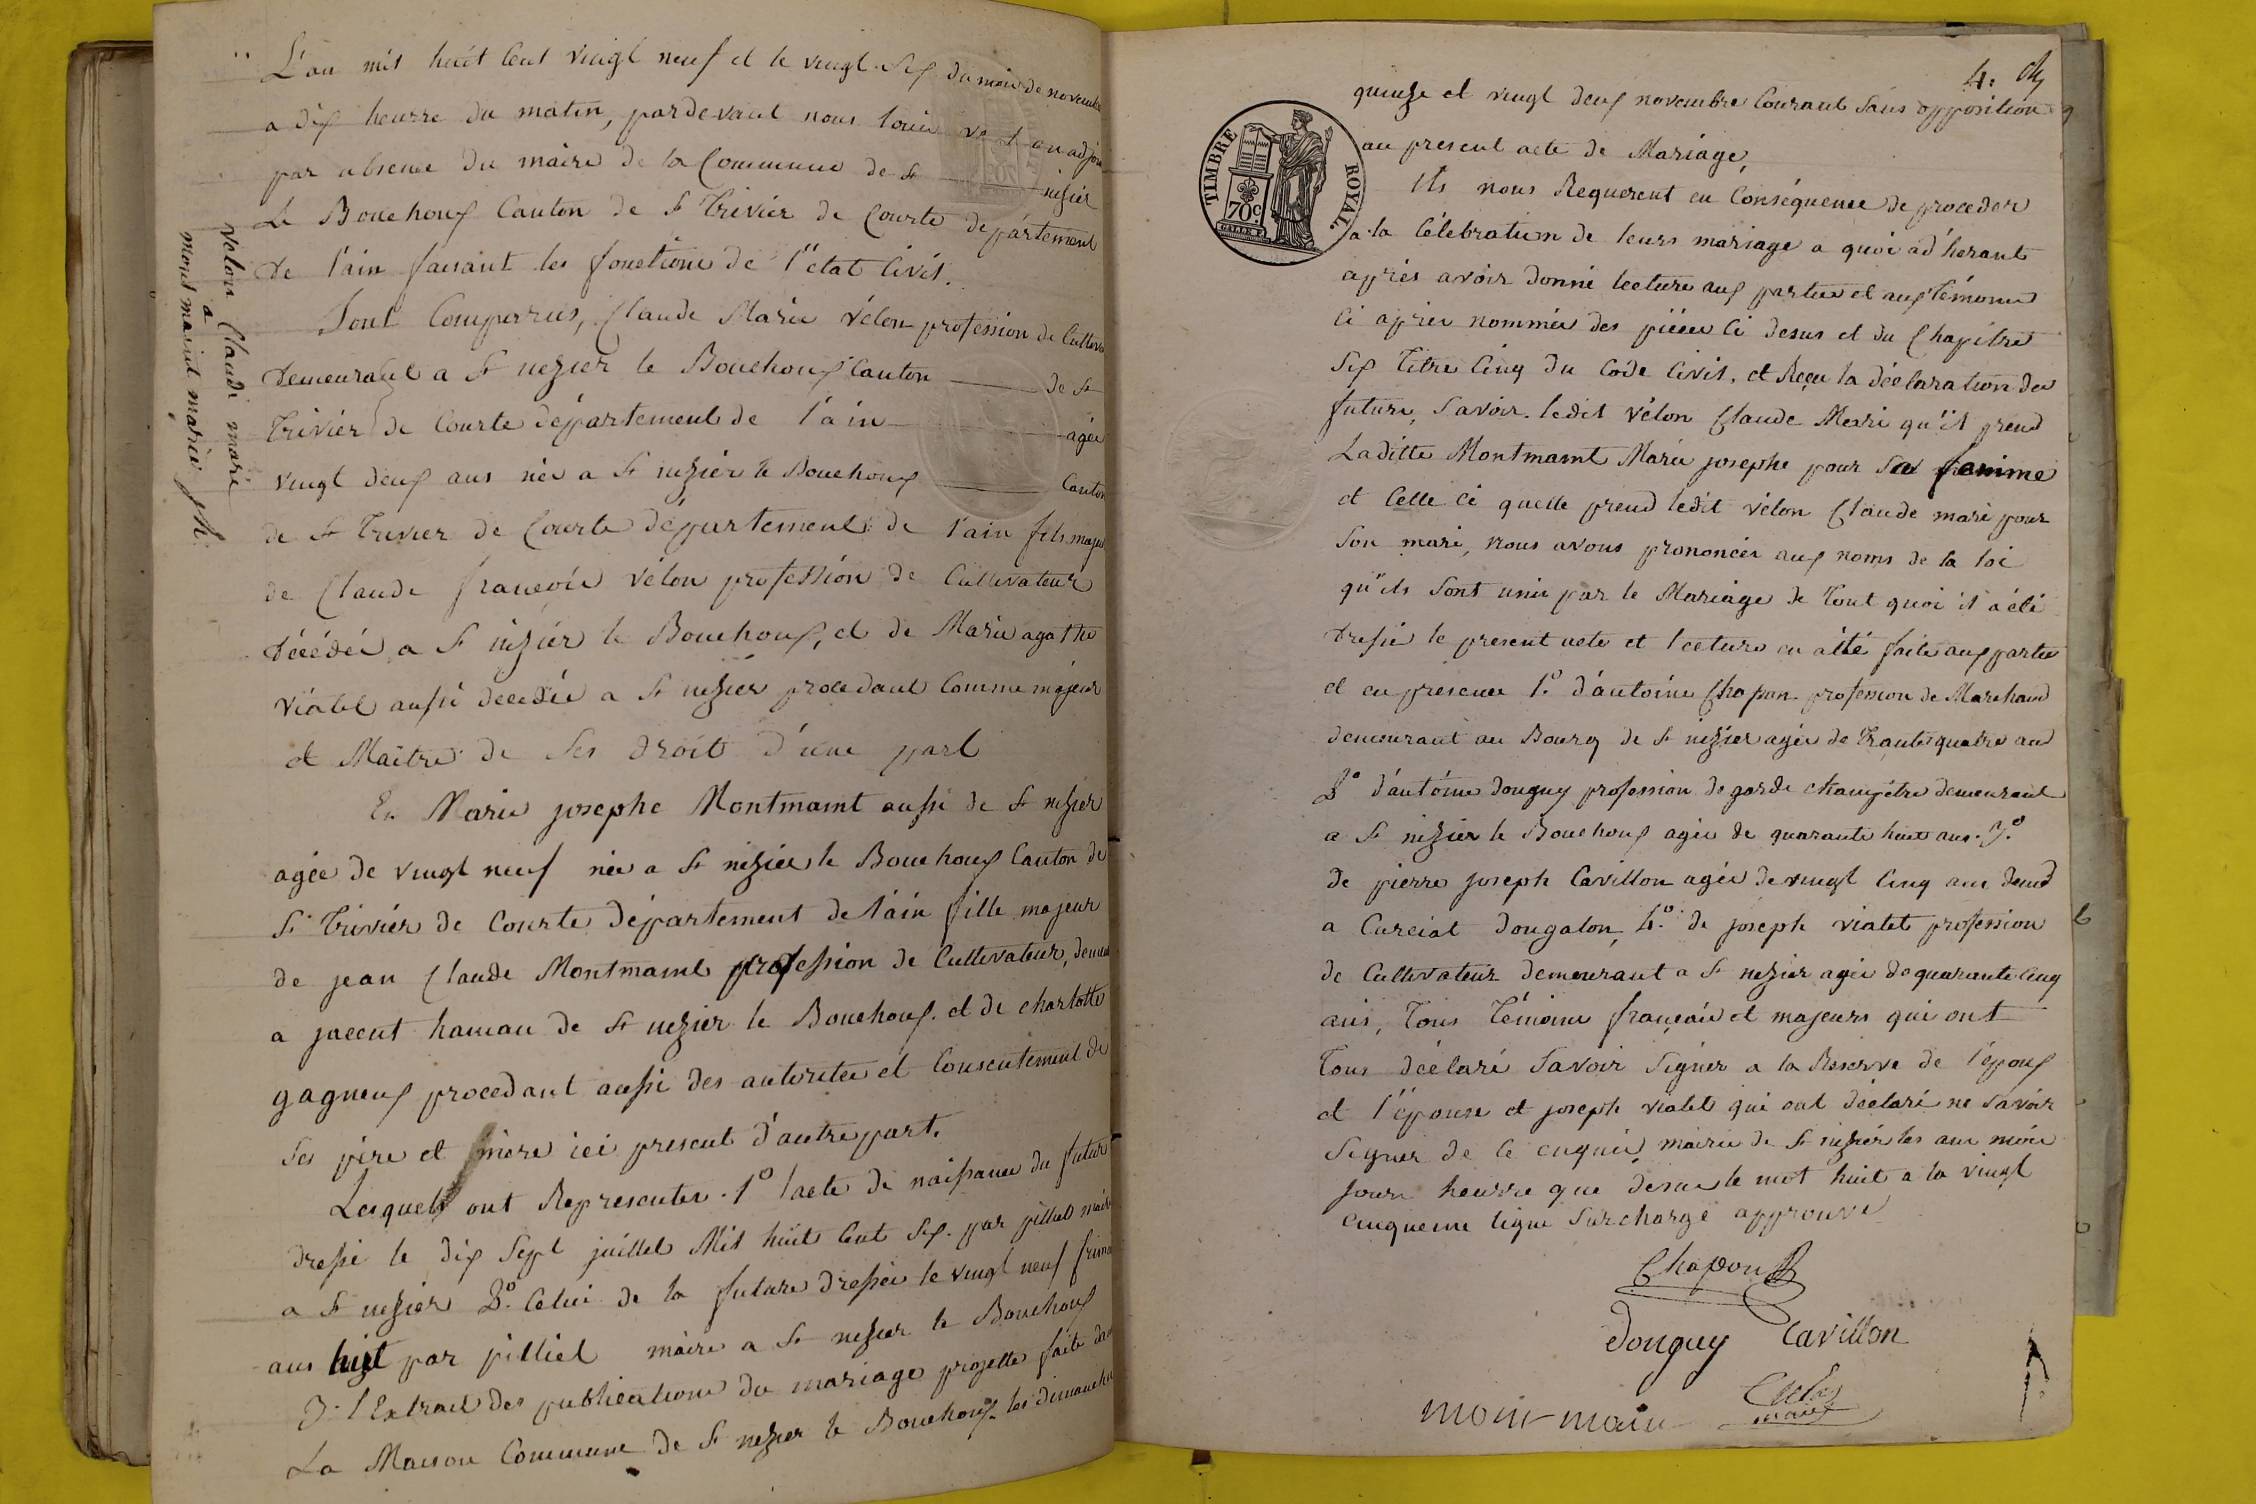 L'an mil huit cent vingt neuf et le vingt six du mois de novembre
a dix heurre du matin, pardevant nous louis adjoin
par absence du maire de la Commune de St nizier
Le Bouchoux Canton de St trivier de Courte département
de l'ain faisant les fonctions de l'etat Civil.
Sont Comparrus, Claude Marie vélon profession de Cultiva
demeurant a St nezier le Bouchoux Canton de St
trivier de Courte département de l'ain agée
vingt deux ans née a St nezier le Bouchoux Canton
de St trivier de Courte département de l'ain fils majeu
de Claude françois vélon profession de Cultivateur
décédée a St nizier le Bouchoux, et de Marie agathe
viatel aussi decedée a St nezier procedant Comme majeur
et Maitre de ses droit d'une part
Et Marie josephe Montmaint aussi de St nezier
agée de vingt neuf née a St nizier le Bouchoux Canton de
St trivier de Courte département de l'ain fille majeur
de jean Claude Montmaint profession de Cultivateur, demeu
a jacent hamau de St nezier le Bouchoux. et de charlotte
gagneux procedant aussi des autoritee et Consentement de
ses père et mère ici present d'autre part.
Lesquels ont Representer. 1° lacte de naissance du futur
dressé le dix sept juillet Mil huit Cent Sept. par pilliel maire
a St nezier 2° Celui de la future dressée le vingt neuf frima
ans huit par pilliel maire a St nezier le Bouchoux
3. l'Extrait des publications du mariage projetté faite dan
La Maison Commune de St nezier le Bouchoux les dimanche
vélon Claude marie
a
mont maint marie jh.
4.
quinze et vingt deux novembre Courant Sans opposition
au present acte de Mariage,
Ils nous Requerent en Conséquence de proceder
a la Célébration de leurs mariage a quoi ad'herant
après avoir donné lecture aux partie et aux témoins
Ci après nommée des pièces Ci desus et du Chapitre
Six titre Cinq du Code Civil, et Reçu la déclaration des
future, Savoir. ledit vélon Claude Marie qu'il prend
Laditte Montmaint Marie josephe pour Sa femme
et Celle Ci quelle prend ledit vélon Claude marie pour
Son mari, nous avons prononcée aux noms de la loi
qu'ils Sont unie par le Mariage de tout quoi il a été
dressé le present acte et lecture en atté faite aux partie
et en presence 1° d'antoine Chapon profession de Marchand
demeurant au Bourg de St nizier agée de trante quatre ans
2° d'antoine douguy profession de garde champêtre demeurant
a St nizier le Bouchoux agée de quarante huit ans. 3.°
de pierre joseph Cavillon agée de vingt Cinq ans demt
a Curciat dougalon, 4.° de joseph viatet profession
de Cultivateur demeurant a St nezier agée de quarante Cinq
ans, tous témoins français et majeurs qui ont
tous déclaré Savoir Signer a la Reserve de l'époux
et l'épouse et joseph viatet qui ont déclaré ne Savoir
Signer de ce enquis, mairie de St nezier les ans même
jours heurre que desue le mot huit a la vingt
cinqueme ligne Surchargé approuvé
Chapon
douguy Cavillon
mont main
TIMBRE ROYAL.
70c.